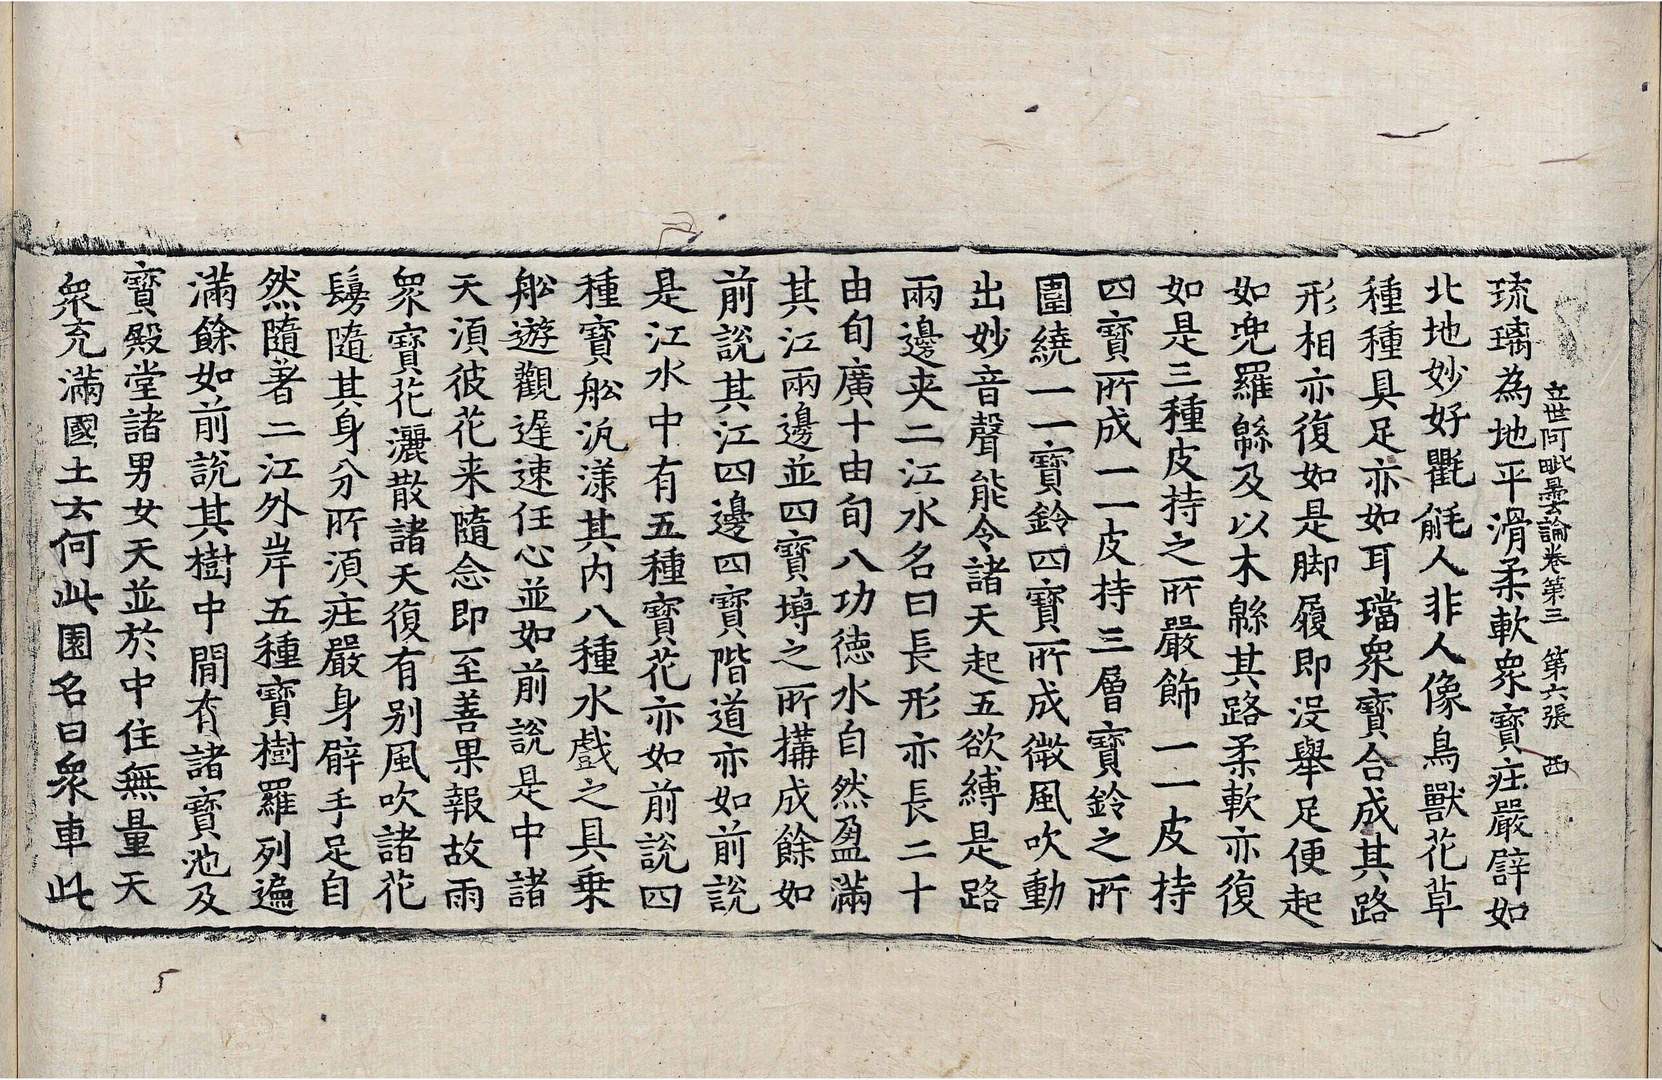 立世阿毗曇論卷第三 第六張 西
琉璃為地平滑柔軟衆寶莊嚴譬如
北地妙好氍毹人非人像鳥獸花草
種種具足亦如耳璫衆寶合成其路
形相亦復如是脚履即没舉足便起
如兜羅緜及以木緜其路柔軟亦復
如是三種皮持之所嚴飾一一皮持
四寶所成一一皮持三層寶鈴之所
圍繞一一寶鈴四寶所成微風吹動
出妙音聲能令諸天起五欲縛是路
兩邊夹二江水名曰長形亦長二十
由旬廣十由旬八功德水自然盈滿
其江兩邊並四寶塼之所構成餘如
前說其江四邊四寶階道亦如前說
是江水中有五種寶花亦如前說四
種寶舩汎漾其内八種水戲之具乗
舩遊觀遲速任心並如前說是中諸
天湏彼花来隨念即至善果報故雨
衆寶花灑散諸天復有别風吹諸花
鬘隨其身分所湏莊嚴身臂手足自
然隨著二江外岸五種寶樹羅列遍
滿餘如前說其樹中間有諸寶池及
寶殿堂諸男女天並於中住無量天
衆充滿國土云何此園名曰衆車此